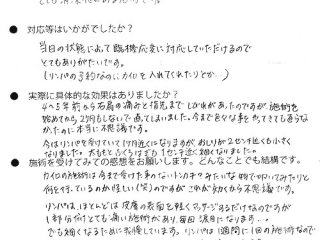 ● 対応等はいかがでしたか?
当日の状態によって臨機応変に対応していただけるので
とてもありがたいです。
(リンパの予約なのにカイロを入れてくれたりとか…)
● 実際に具体的な効果はありましたか?
4~5年前から右肩の痛みと指先までしびれがあったのですが、施術を
始めてから2ヶ月もしないで直ってしまいました。今まで色々な事をやってきても直らな
かったのに本当に不思議です。
今はリンパを受けていて1ヶ月近くになりますが、おしりが2センチ近くも小さく
なりました。太ももとふくらはぎも1センチ近く細くなりました。
● 施術を受けてみての感想をお願いします。どんなことでも結構です。
カイロの施術は今まで受けた事のないトンカチみたいな物で叩いてみたりと
何を行っているのか怪しい(笑)のですが これが効くから不思議です。
リンパは、ほとんどは皮膚の表面を軽くマッサージするだけなのですが
1部分だけとても痛い施術があり、毎回涙目になります…。
でも細くなるために我慢しています。リンパは1週間に1回の施術なので